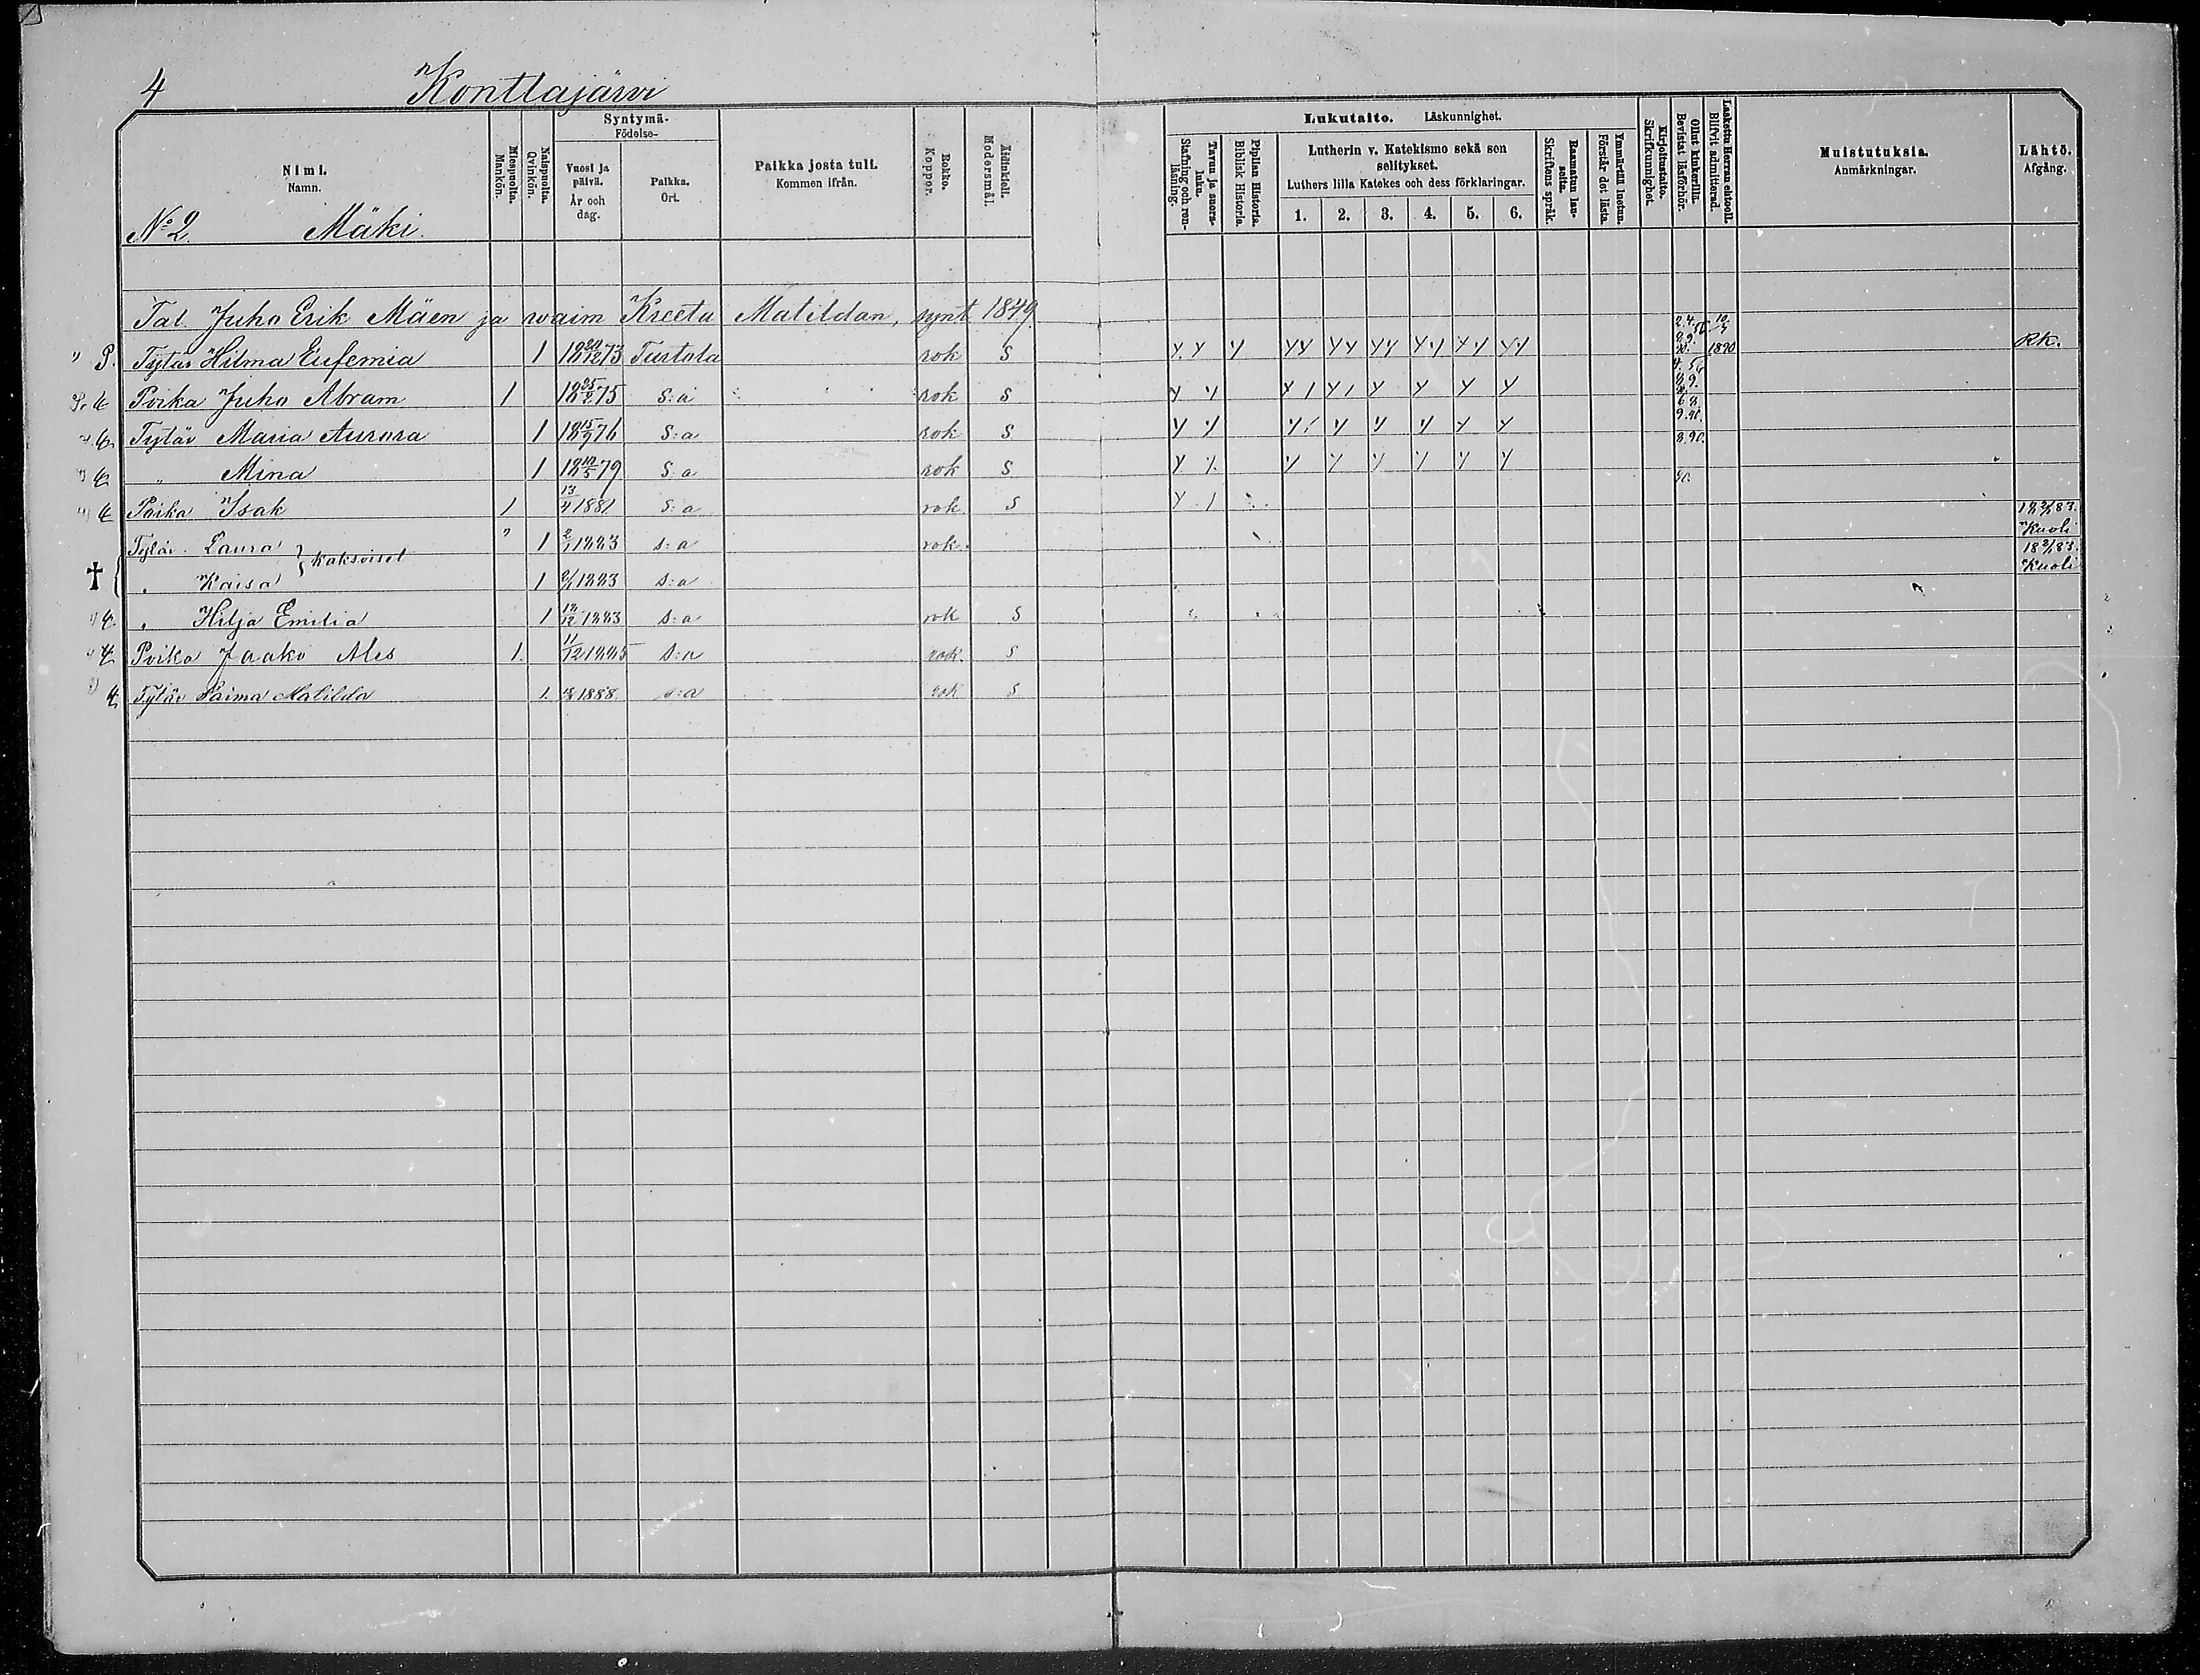 4 Konttajärvi
Syntymä-
Födelse-
Nimi.
Namn.
Miespuolia. Mankön.
Naispuolia. Qvinkön.
Vuosi ja päivä. År och dag.
Paikka. Ort.
Paikka josta tuli.
Kommen ifrån.
Rokko. Koppor.
Äidinkieli. Modersmål.
Lukutaito. Läskunnighet.
Tavuu ja suora-luku. Stafning och ren-läsning.
Piplian Historia. Biblisk Historie.
Lutherin v. Katekismo sekä sen selitykset.
Luthers lilla Katekes och dess förklaringar.
1. 2. 3. 4. 5. 6.
Raamatun lau-seita. Skriftens språk.
Ymmärtää luetun. Förstår det lästa.
Kirjoitustaito. Skrifkunnighet.
Ollut kinkerillä. Bevistat läsförhör.
Laskettu Herran ehtooll. Blifvit admitterad.
Muistutuksia.
Anmärkningar.
Lähtö.
Afgång.
No 2. Mäki.
Tal. Juho Erik Mäen ja waim Kreeta Matildan, synt 1849.
" P. Tytär Hilma Eufemia 1 18 73 Turtola rok S 1890 Rk.
Poika Juho Abram 1 18 25/2 75 S:a rok S
Tytär Maria Aurora 1 18 15/9 76 S:a rok S 8.90.
" Mina 1 18 79 S:a rok S 90.
Poika Isak 1 13/4 1881 S:a rok S
Tytär Laura 1 2/1 1883 s:a rok. 18 2/1 83. Kuoli
} kaksoiset
† { " Kaisa 1 2/1 1883 s:a 18 2/1 83. Kuoli
" Hilja Emilia 1 1883 s:a rok S
Poika Jaako Ales 1. 11/12 1885 s:a rok. S
Tytär Saima Matilda 1. 1888. s:a rok S